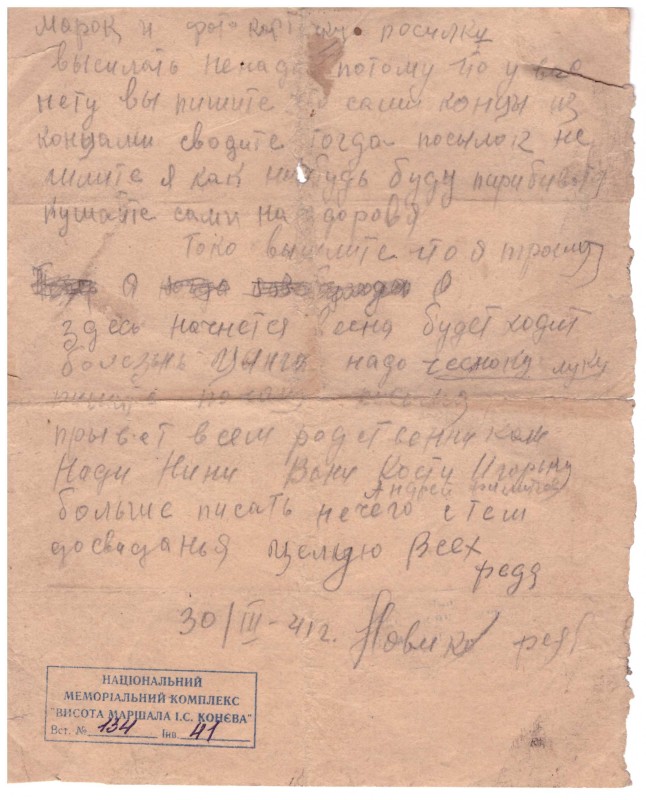 марок и фото карточку посылку
высилать ненада потому что у вас
нету вы пишите что сами концы из
концами сводите тогда посылок не
шлите я как нибудь буду
кушайте сами на здоровя
токо вышлите что я прошу
я
здесь начнется весна будет ходит
болезьнь цынга надо чесноку луку
прывет всем родственникам
Нади Нини Вани Кости Игорьку
Андрей
больше писать нечего стем
досвиданья целую Всех
Федя
30/III-41г. Новик Федя
НАЦІОНАЛЬНИЙ
МЕМОРІАЛЬНИЙ КОМПЛЕКС
"ВИСОТА МАРШАЛА І.С. КОНЄВА"
Вст. № 134 Інв. 41